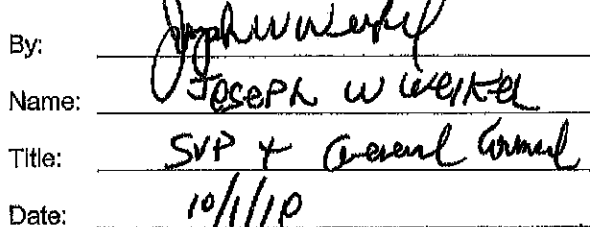 By: Joseph W Weikel
Name: Joseph W Weikel
Title: SVP + General Counsel
Date: 10/1/10